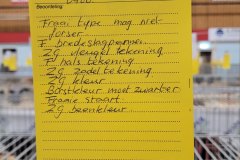 Beoordeling
Fraai type mag niet
forser
F bredeslagpennen
ZG vleugel tekening
F hals tekening
ZG zadel tekening
ZG kleur
Borstkleur moet zwarter
Fraaie staart
ZG beenkleur